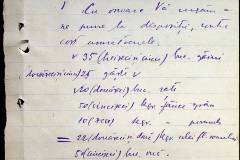 Cu onoare Vă rugăm a
ne pune la dispoziție, contra
cost următoarele.
35 (treizecicinci) buc. găini
douăzecicinci 25 gâște
20 (douăzeci) buc. rațe
50 (cincizeci) kgr. făină grâu
10 (zece) kgr.
22 (douăzeci și două) kgr. ulei fl. soarelui
5 (cinci) buc.